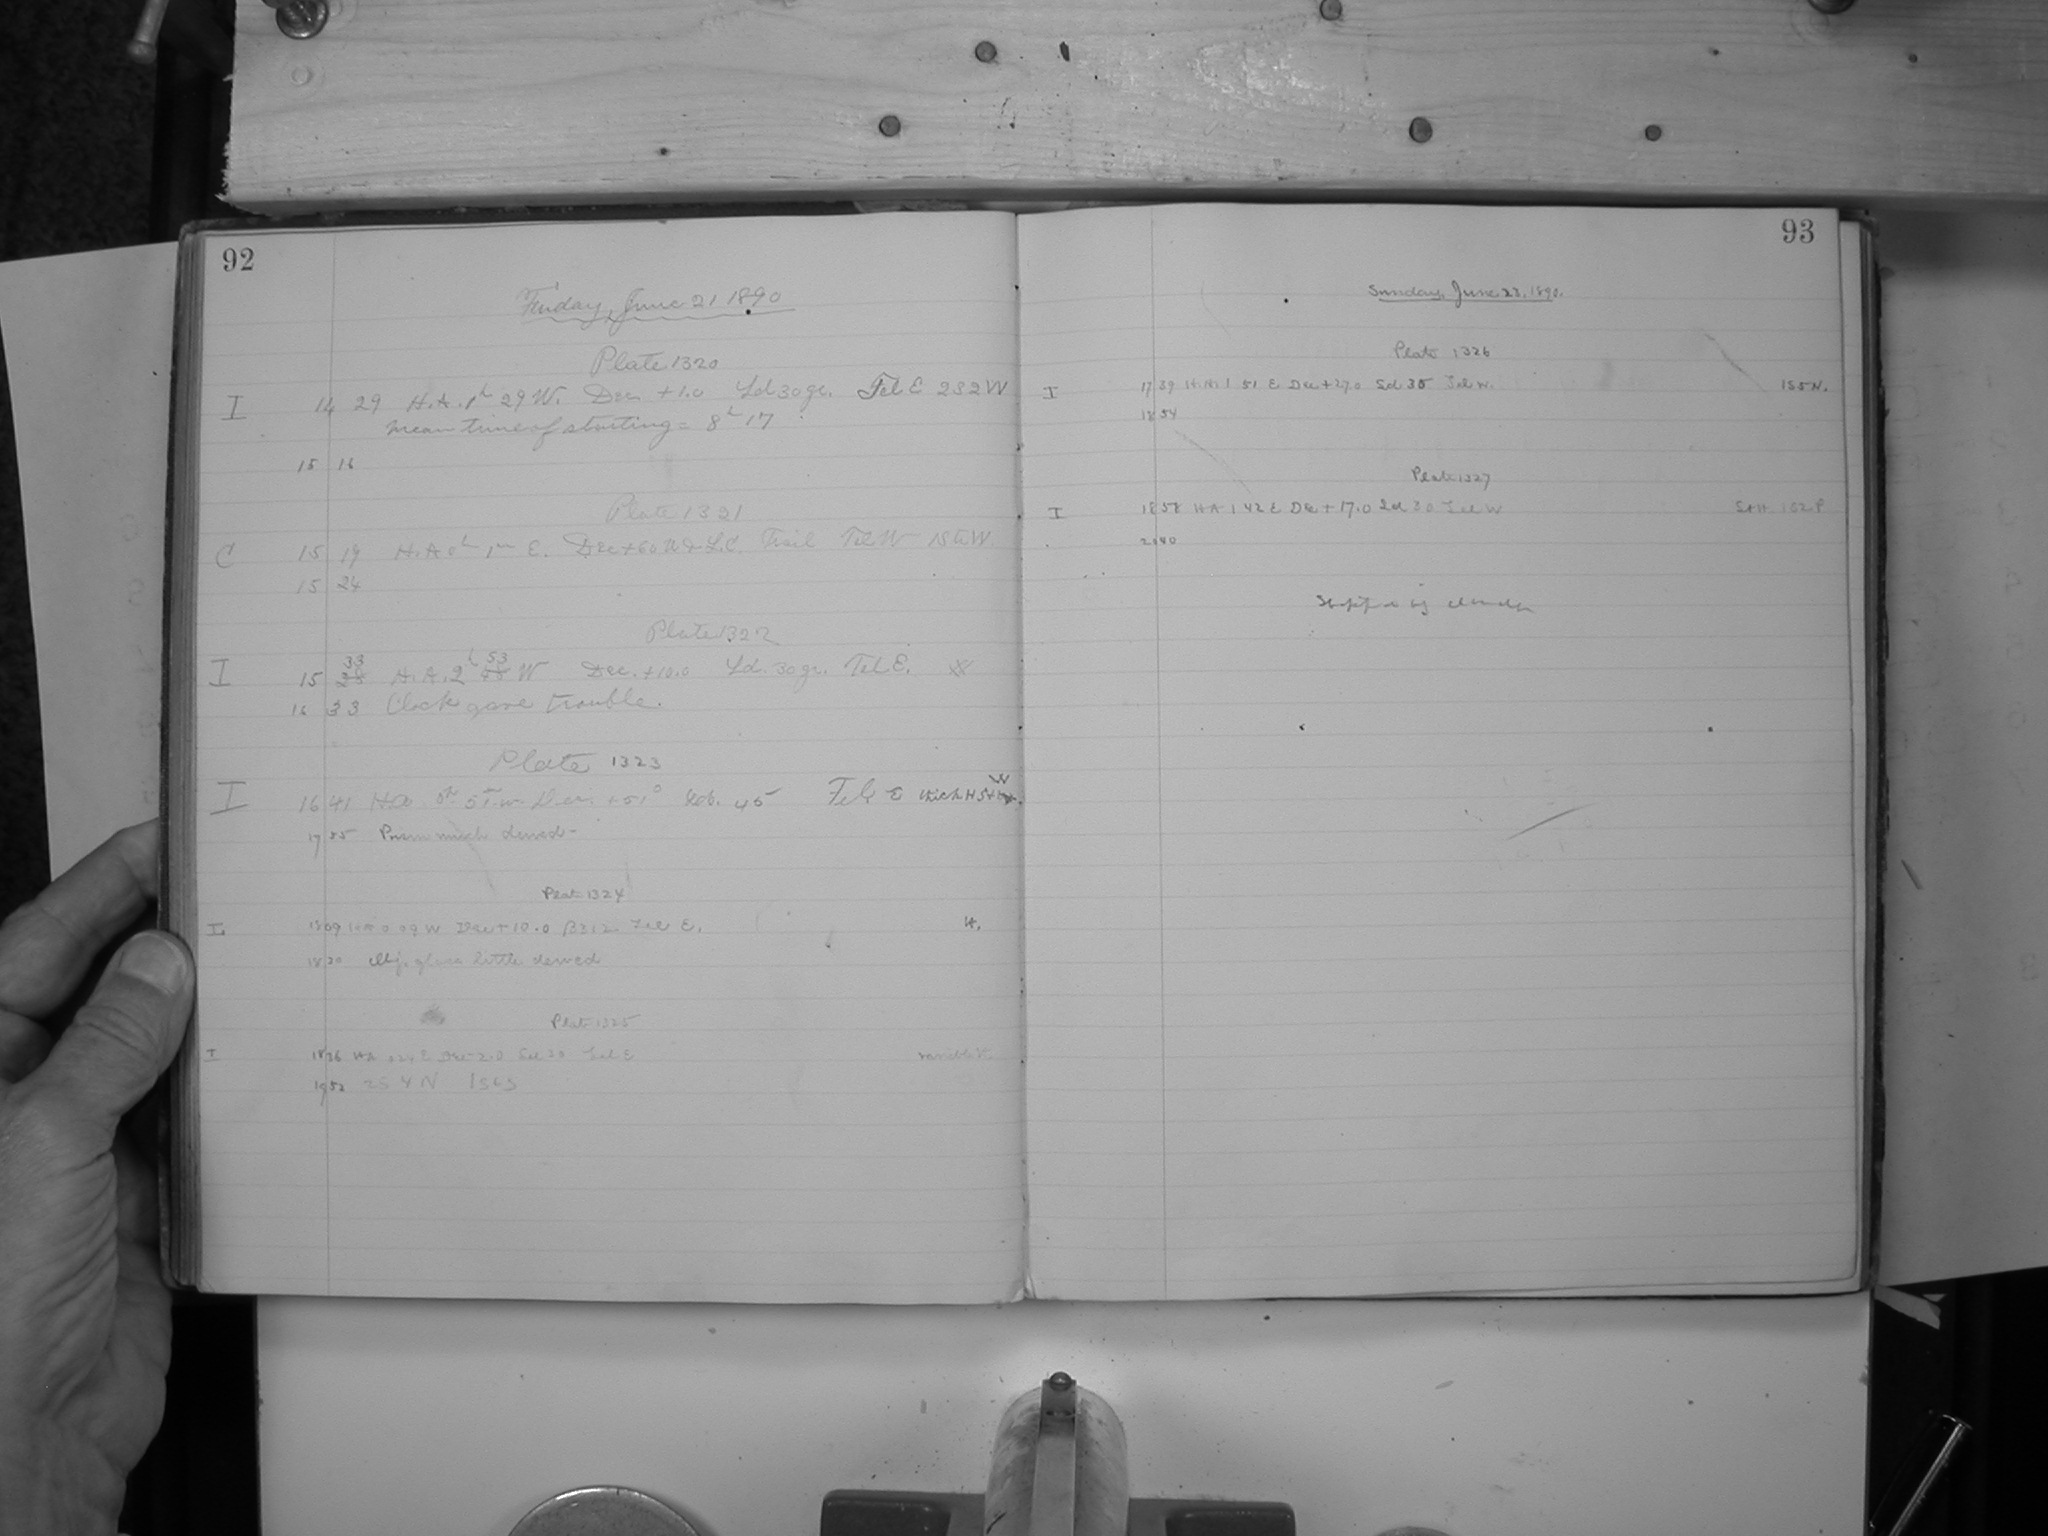 92
Friday, June 21 1890
Plate 1320
I 14 29 H.A. 1h 29 W. Dec. +1.0 Sd 30 gr. Tel E 232 W
mean time of starting = 8h 17
15 16
Plate 1321
C 15 19 H.A 0h 1m E. Dec +60 L.C. Trail Tel W
15 24
Plate 1322
I 15 33 H.A. 2h 53 W Dec. +10.0 Sd. 30 gr. Tel E.
16 33 Clock gave trouble.
Plate 1323
I 16 41 HA 0h 51 w. Dec. +51° 45 Tel E thick
17 55 Prism much dewed -
Plate 1324
I 18 09 HA 0 09 W Dec +10.0 Tel E. H.
18 20 Obj. glass little dewed
Plate 1325
I 18 36 HA E Dec -2.0 Sd 30 Tel E variable
19 52 25 4 N
93
Sunday, June 23, 1890.
Plate 1326
I 17 39 H.A. 1 51 E Dec +27.0 Sd 35 Tel W. 155 N.
18 54
Plate 1327
I 18 58 HA 1 42 E Dec +17.0 Sd 30 Tel W 162 P
20 40
Stopped by clouds